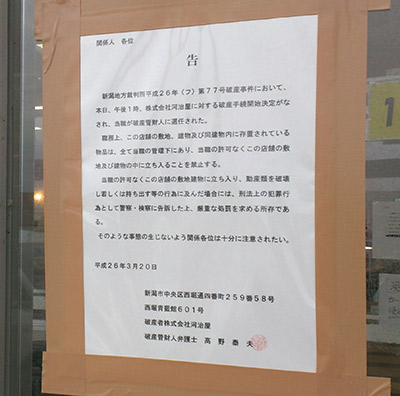 関係人　各位
告
新潟地方裁判所平成２６年（フ）第７７号破産事件において、
本日、午後１時、株式会社河治屋に対する破産手続開始決定がな
され、当職が破産管財人に選任された。
職務上、この店舗の敷地、建物及び同建物内に存置されている
物品は、全て当職の管理下にあり、当職の許可なくこの店舗の敷
地及び建物の中に立ち入ることを禁止する。
当職の許可なくこの店舗の敷地建物に立ち入り、動産類を破壊
し若しくは持ち出す等の行為に及んだ場合には、刑法上の犯罪行
為として警察・検察に告訴した上、厳重な処罰を求める所存であ
る。
そのような事態の生じないよう関係各位は十分に注意されたい。
平成２６年３月２０日
新潟市中央区西堀通四番町２５９番５８号
西堀青藍館６０１号
破産者株式会社河治屋
破産管財人弁護士　高野泰夫
1